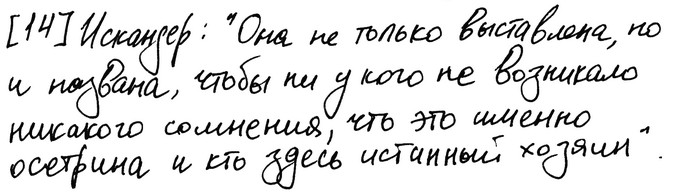 [14] Искандер: "Она не только выставлена, но
и названа, чтобы ни у кого не возникало
никакого сомнения, что это именно
осетрина и кто здесь истинный хозяин".